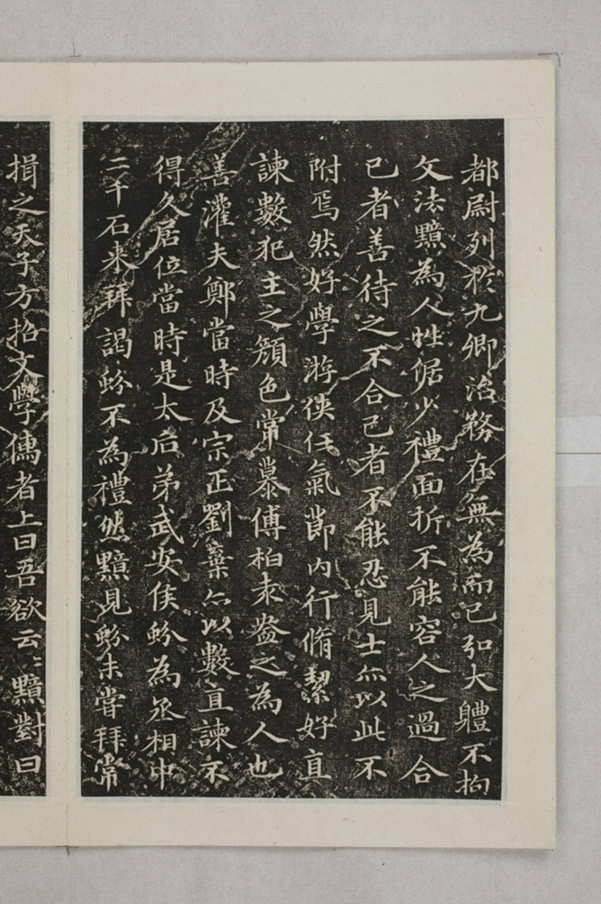 都尉列扵九卿治務在無為而已弘大體不拘
文法黯為人性倨少禮面折不能容人之過合
己者善待之不合己者不能忍見士亦以此不
附焉然好學游俠任氣節内行脩絜好直
諫數犯主之顔色常慕傅柏袁盎之為人也
善灌夫鄭當時及宗正劉棄亦以數直諫不
得久居位當時是太后弟武安侯蚡為丞相中
二千石来拜謁蚡不為禮然黯見蚡未嘗拜常
揖之天子方招文學儒者上曰吾欲云〻黯對曰